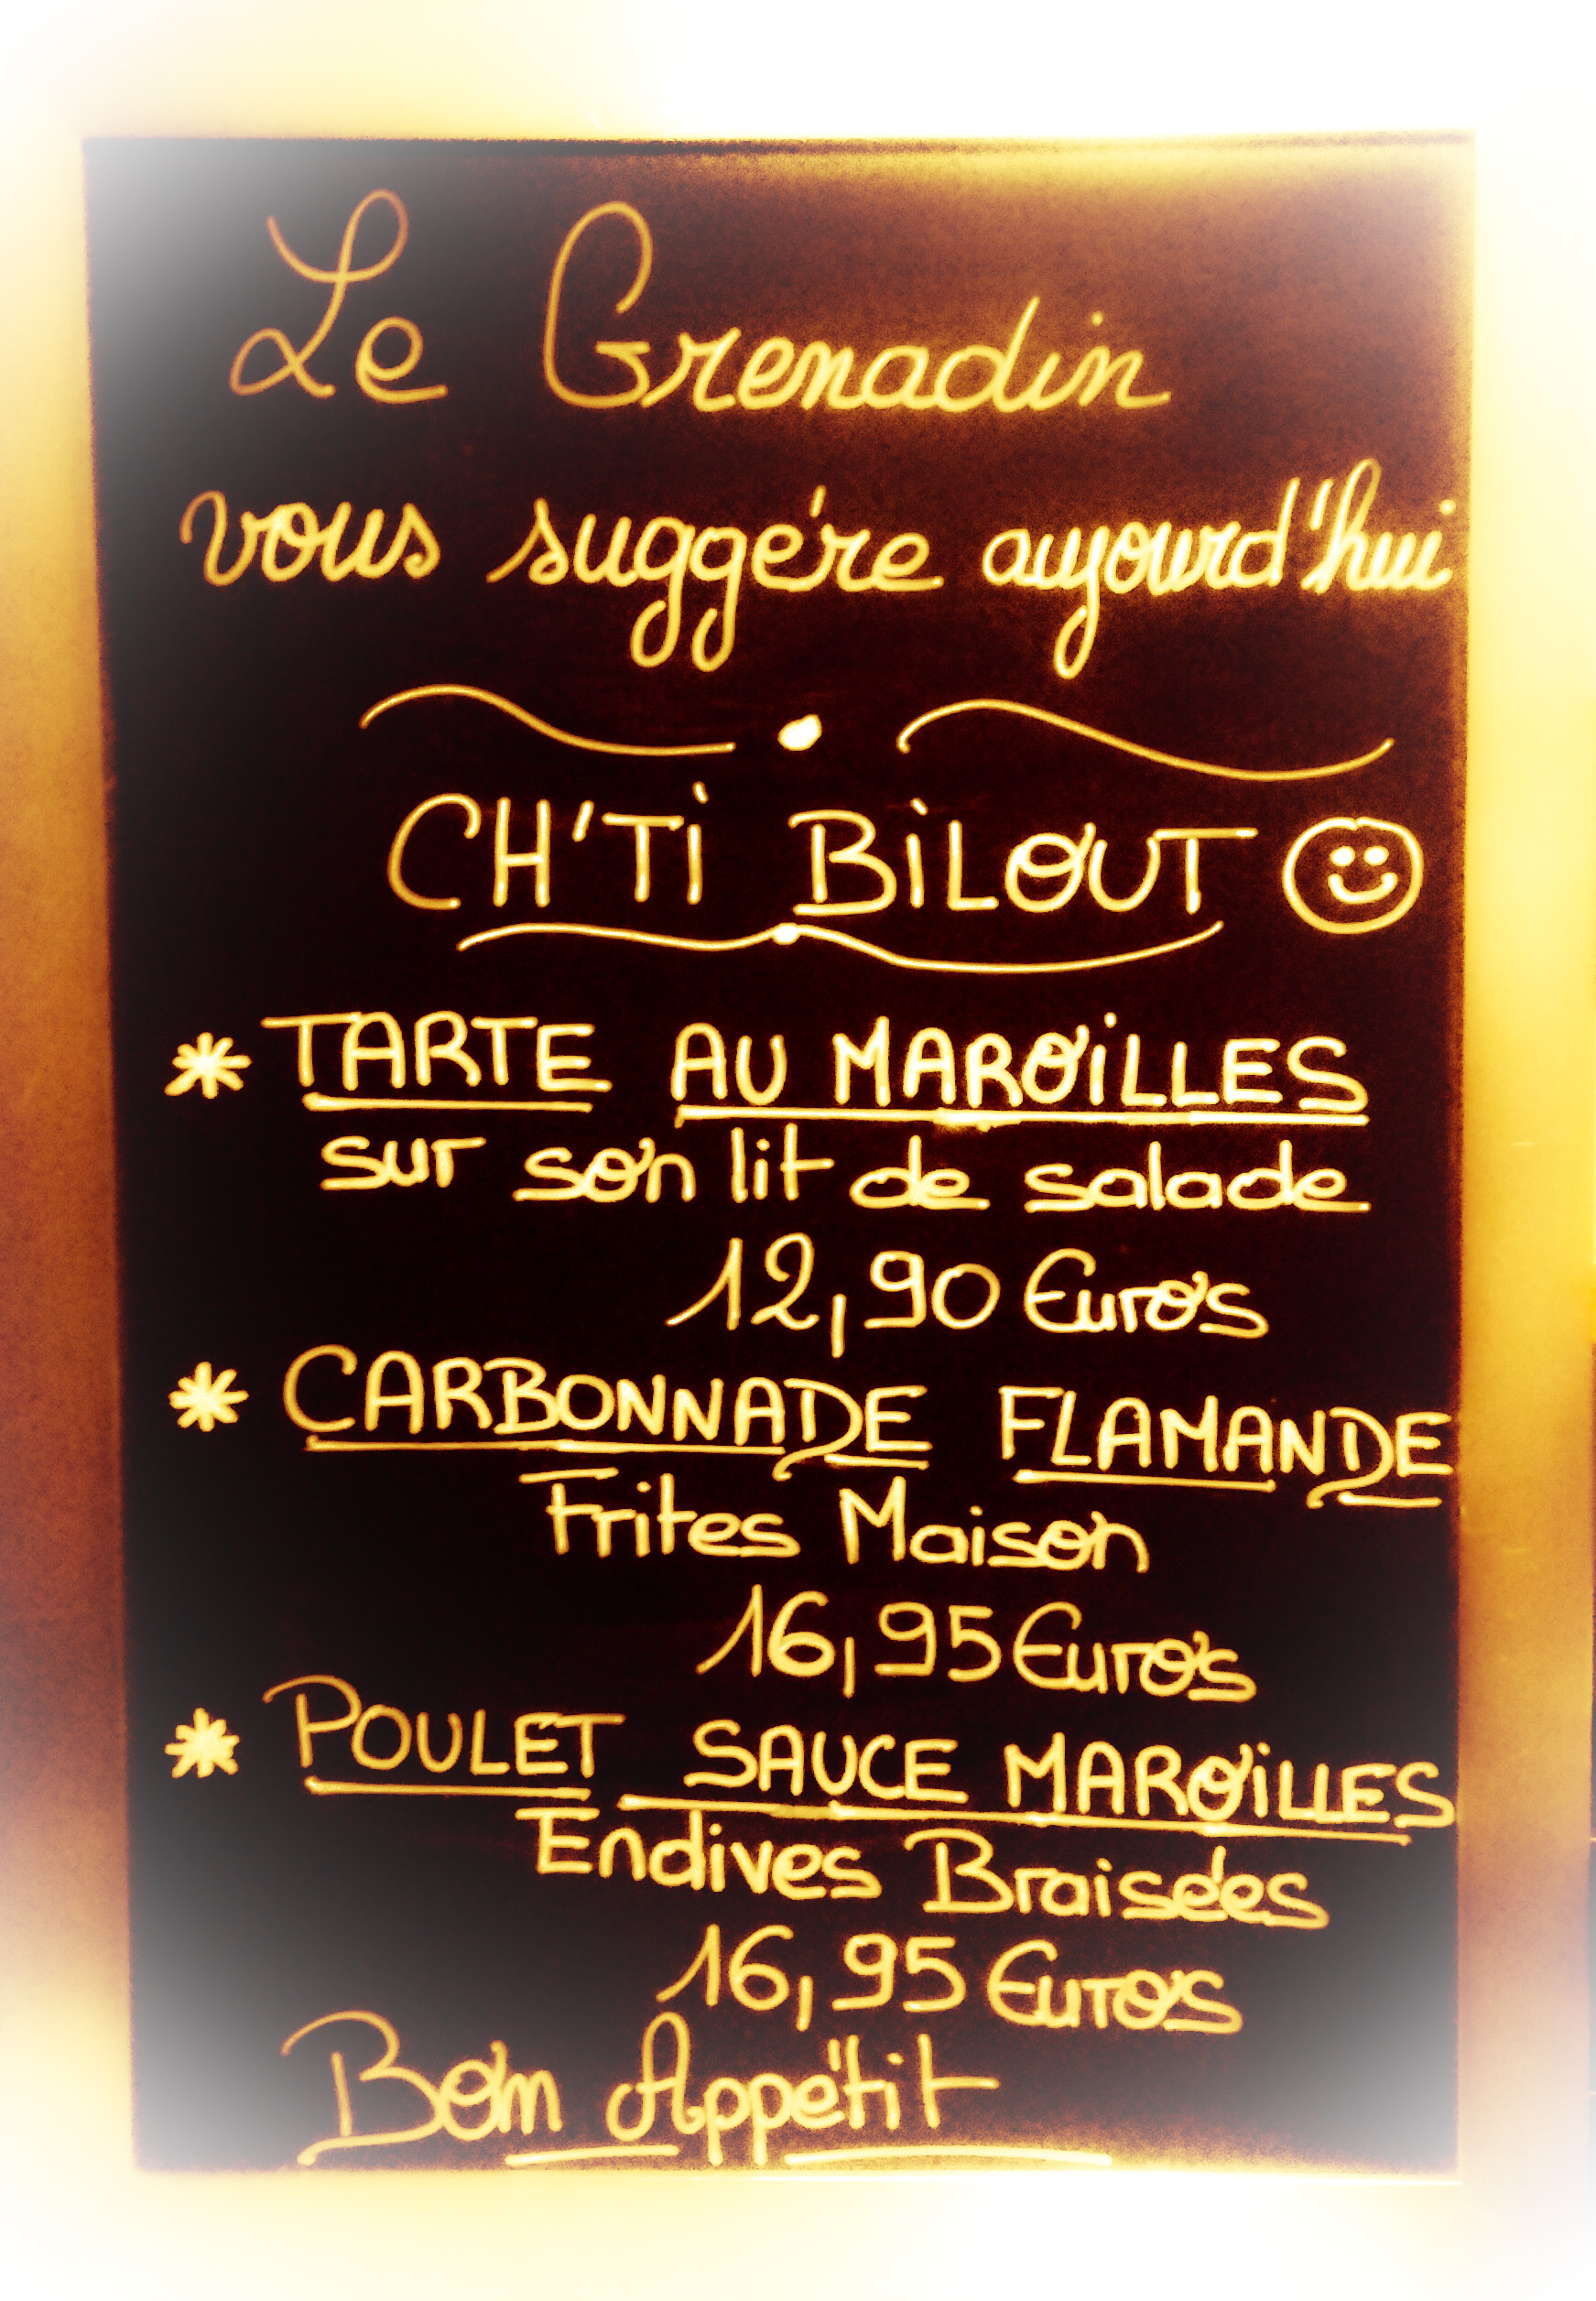 Le Grenadin
vous suggére aujourd'hui
CH'Ti BiLOUT
* TARTE AU MAROiLLES
sur son lit de salade
12,90 Euros
* CARBONNADE FLAMANDE
Frites Maison
16,95 Euros
* POULET SAUCE MAROiLLES
Endives Braisées
16,95 Euros
Bon Appétit